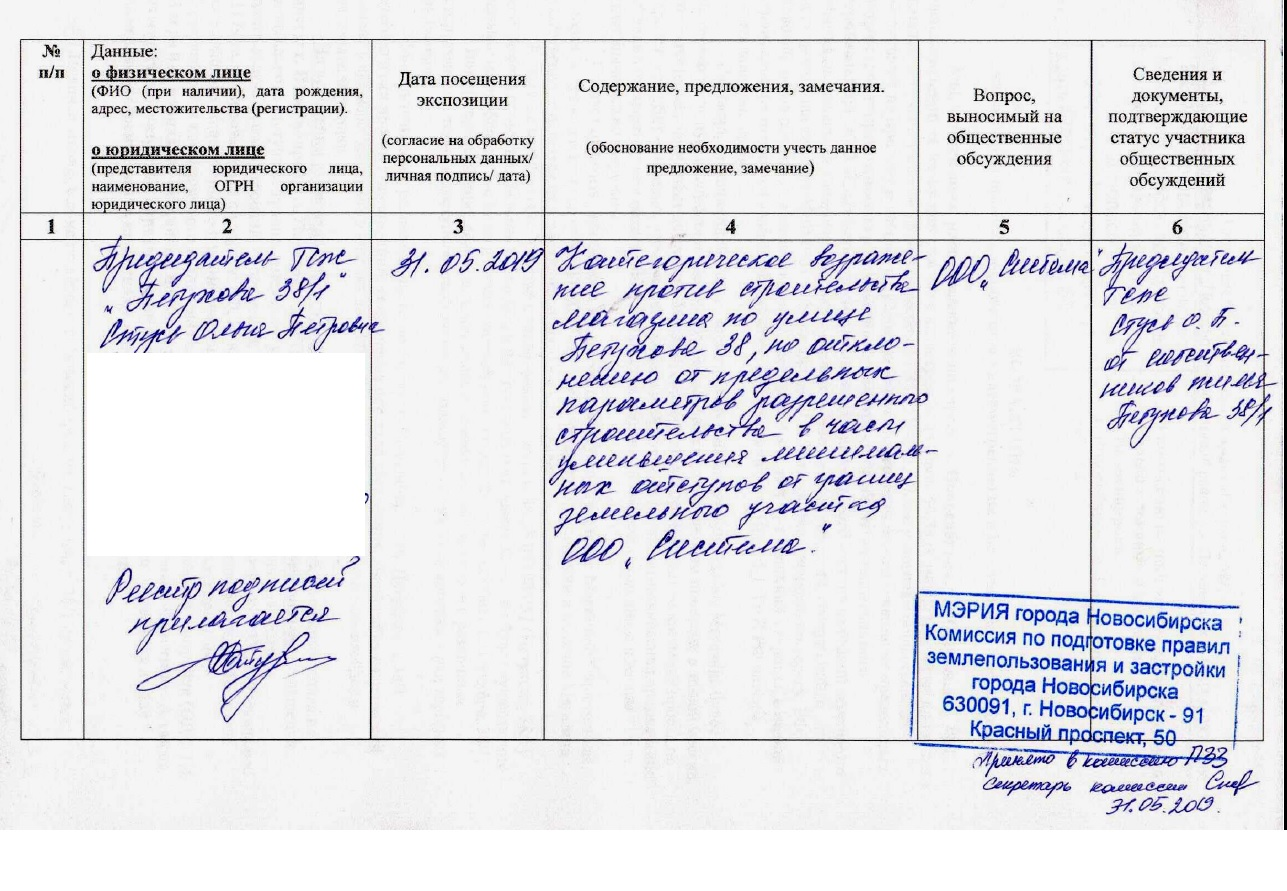 №
п/п
Данные:
о физическом лице
(ФИО (при наличии), дата рождения,
адрес, местожительства (регистрации).
о юридическом лице
(представителя юридического лица,
наименование, ОГРН организации
юридического лица)
Дата посещения
экспозиции
(согласие на обработку
персональных данных/
личная подпись/ дата)
Содержание, предложения, замечания.
(обоснование необходимости учесть данное
предложение, замечание)
Вопрос,
выносимый на
общественные
обсуждения
Сведения и
документы,
подтверждающие
статус участника
общественных
обсуждений
1
2
3
4
5
6
Председатель ТСЖ
"Петухова 38/1"
Стусь Ольга Петровна
Реестр подписей
прилагается
31.05.2019
Категорическое возраже-
ние против строительства
магазина по улице
Петухова 38, по откло-
нению от предельных
параметров разрешенного
строительства в части
уменьшения минималь-
ных отступов от границ
земельного участка
ООО „Система."
ООО „Система"
Председатель
ТСЖ
Стусь О. П.
от собствен-
ников жилья
Петухова 38/1
МЭРИЯ города Новосибирска
Комиссия по подготовке правил
землепользования и застройки
города Новосибирска
630091, г. Новосибирск - 91
Красный проспект, 50
Принято в комиссию ПЗЗ
секретарь комиссии
31.05.2019.